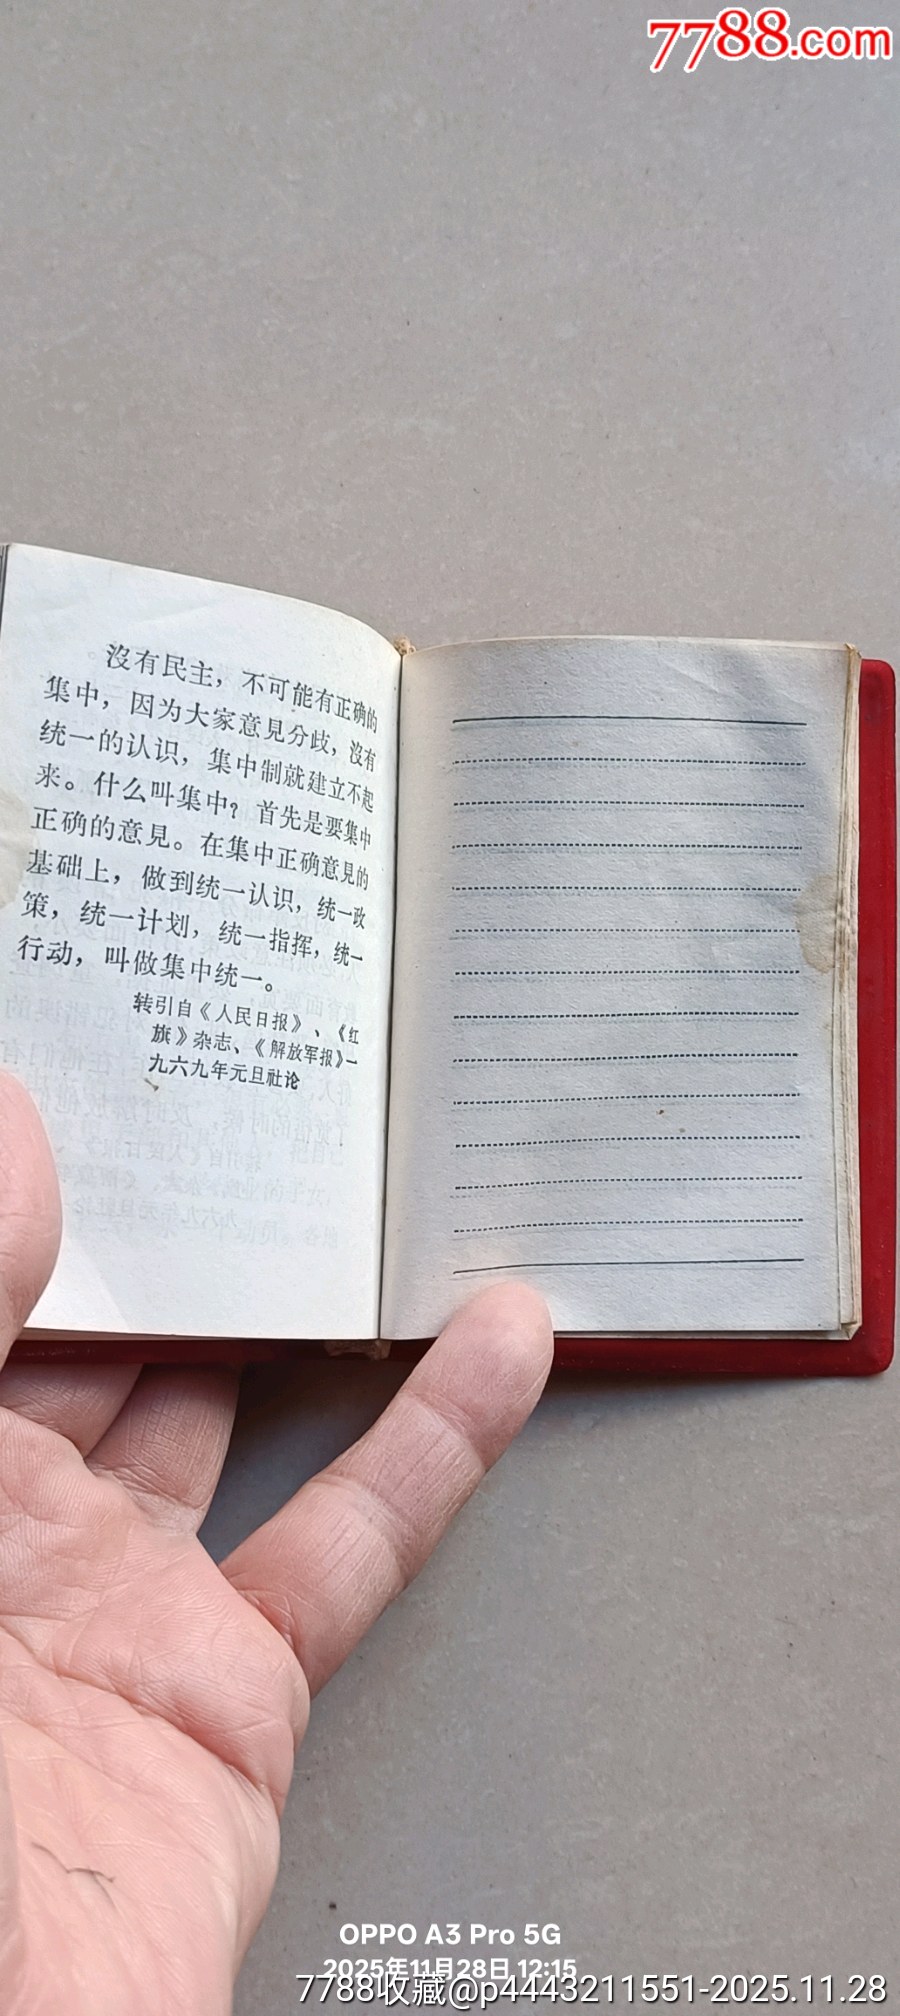 7788.com
沒有民主，不可能有正确的
集中，因为大家意見分歧，沒有
统一的认识，集中制就建立不起
来。什么叫集中？首先是要集中
正确的意見。在集中正确意見的
基础上，做到统一认识，统一政
策，统一计划，统一指挥，统一
行动，叫做集中统一。
转引自《人民日报》、《红
旗》杂志、《解放军报》一
九六九年元旦社论
OPPO A3 Pro 5G
2025年11月28日 12:15
7788收藏@p4443211551-2025.11.28